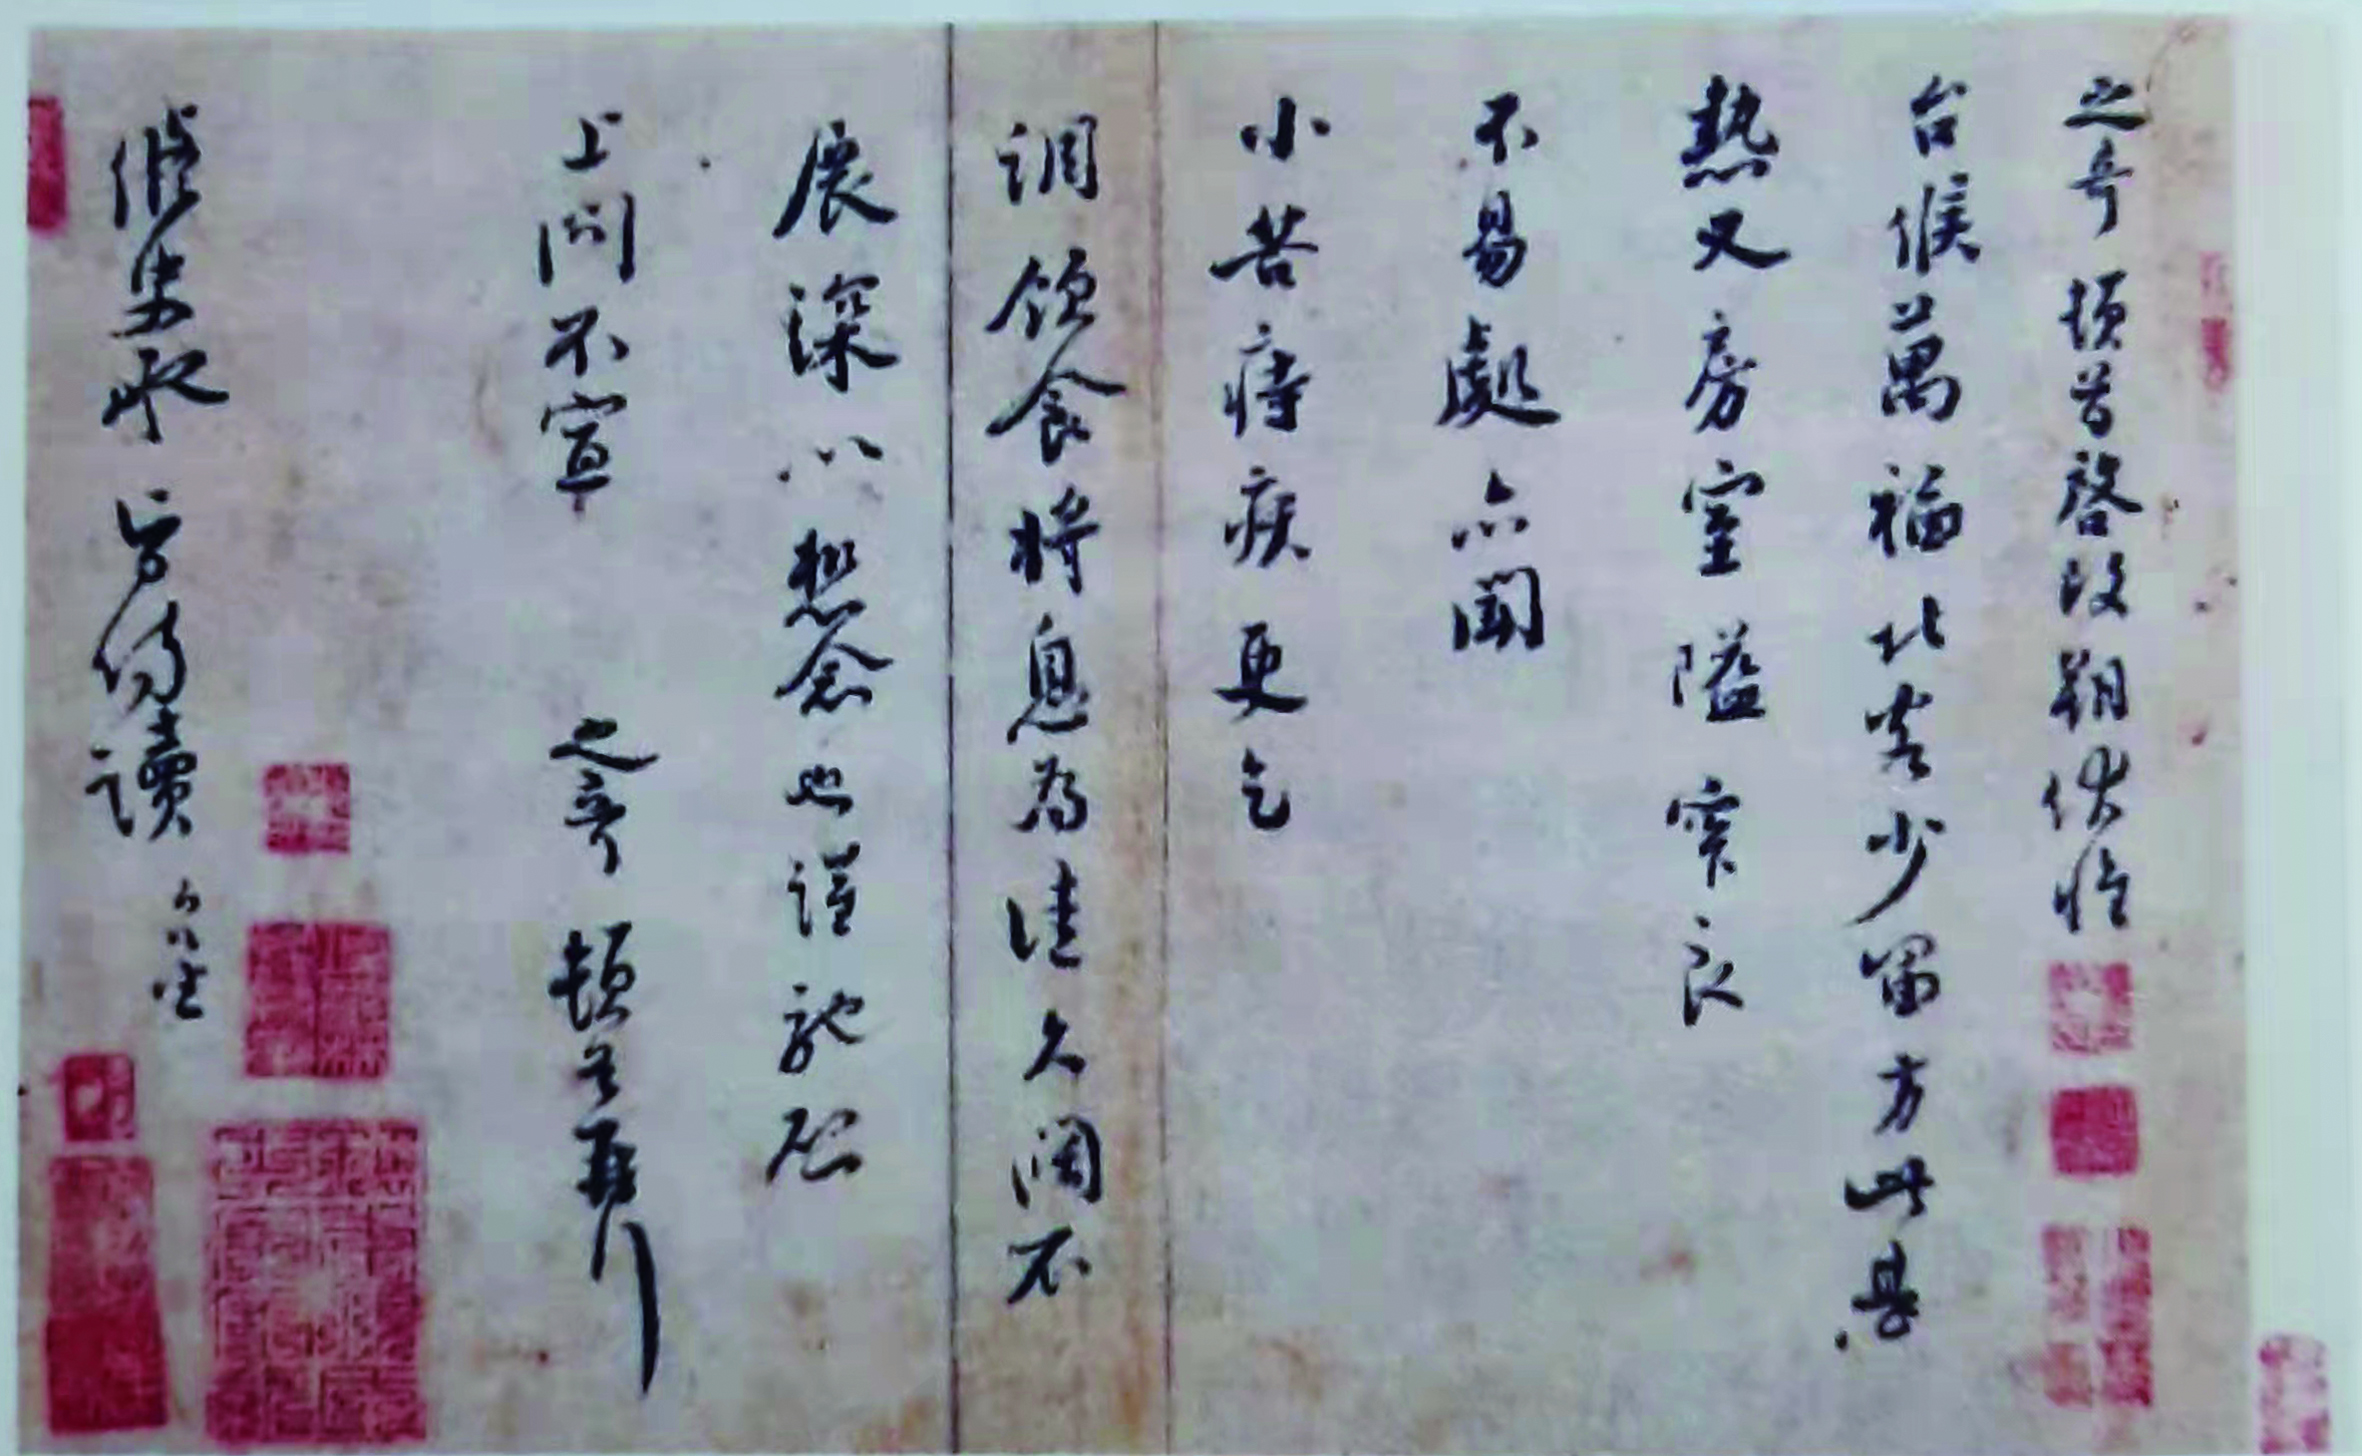 之奇頓首啓改朔伏惟
台候萬福北客少留方此甚
熱又房室隘窄良
不易處亦聞
小苦痔疾更乞
調飲食將息為佳久闊不
展深以想念也謹馳啓
上問不宣 之奇頓首再拜
脩史承旨侍讀 台坐